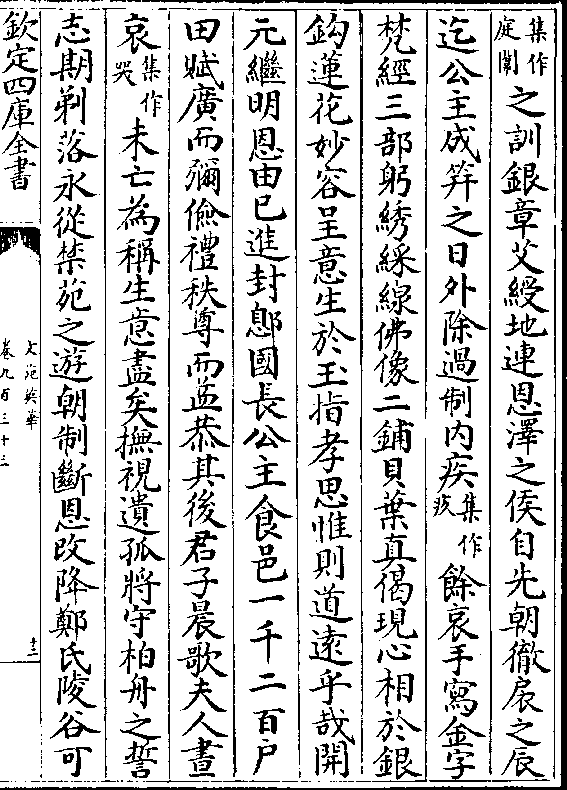 集作庭闈之訓銀章艾綬地連恩澤之侯自先朝徹扆之辰
迄公主成笄之日外除過制内疾集作疚餘哀手寫金字
梵經三部躬綉綵線佛像二鋪貝葉真偈現心相於銀
鈎蓮花妙容呈意生於玉指孝思惟則道遠乎哉開
元繼明恩由已進封鄎國長公主食邑一千二百户
田賦廣而彌儉禮秩尊而益恭其後君子晨歌夫人晝
哀集作哭未亡為稱生意盡矣撫視遺孤將守柏舟之誓
志期剃落永從禁苑之遊朝制斷恩改降鄭氏陵谷可
欽定四庫全書
文苑英華
卷九百三十三
十三